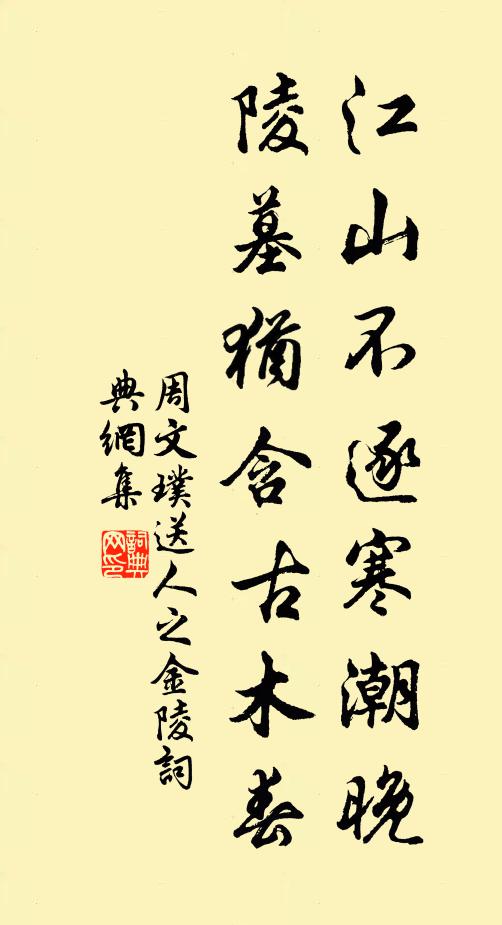 江山不逐寒潮晚
陵墓猶含古木春
周文璞送人之金陵詞
典網集
詞典
网印